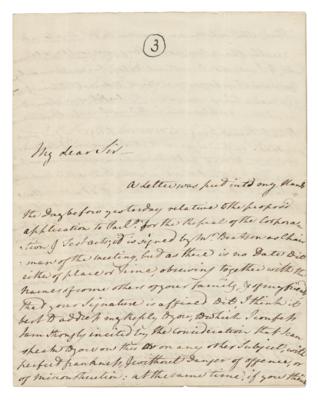 3
My dear Sir
A Letter was put into my Hands
the day before yesterday relative to the propos'd
application to Parlt. for the Repeal of the Corpora-
tion & Test acts, it is signed by Mr. as Chair-
man of the meeting, but as there is no Date to it
either of place or time observing together with the
Names of some others of your family, & of my friends
that your Signature is affixed to it: I think it
best to address my Reply to you, to which I confess
I am strongly incited by the consideration that I can
speak to you on this or on any other Subject, with
perfect frankness, & without danger of offence, or
of misconstruction: at the same time, if you think